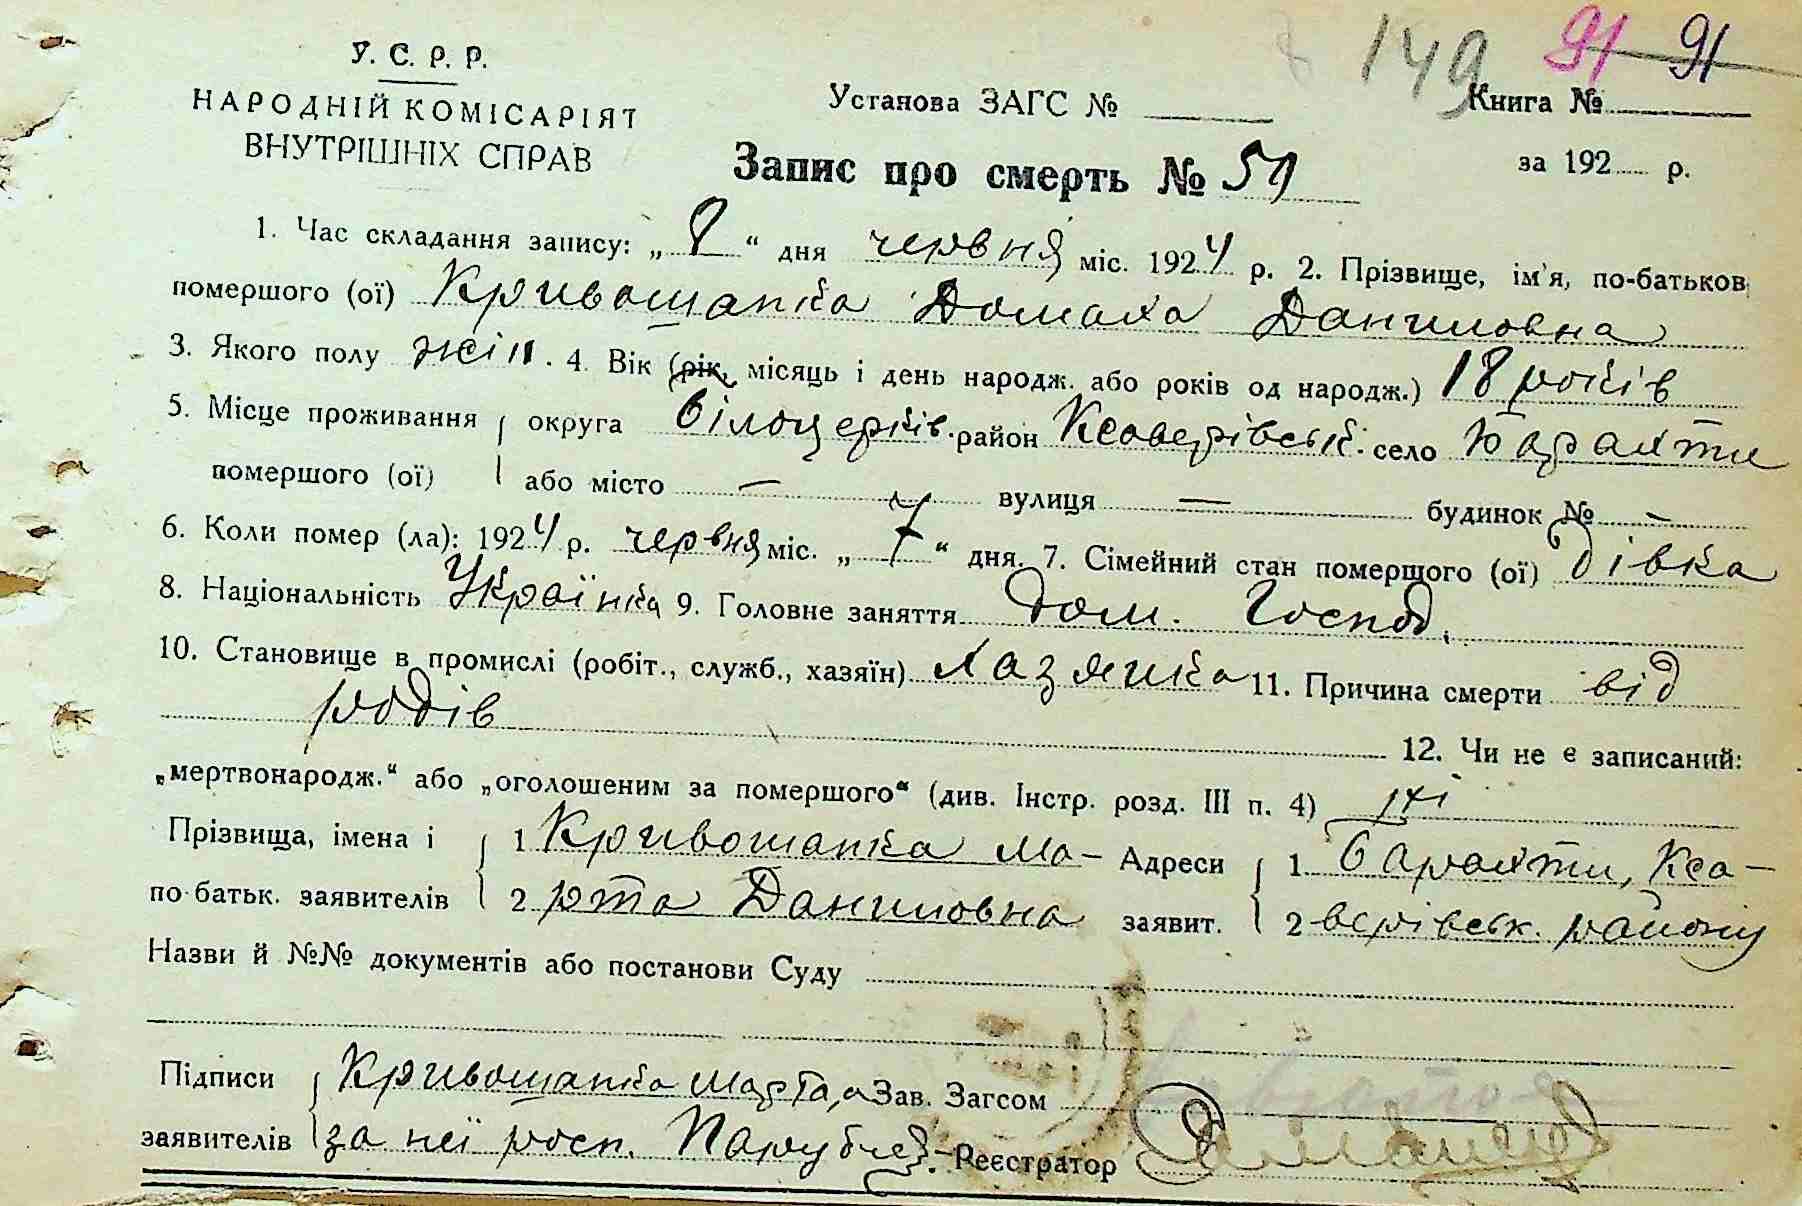 149 91 91
У. С. Р. Р.
НАРОДНІЙ КОМІСАРІЯТ
ВНУТРІШНІХ СПРАВ
Установа ЗАГС № Книга №
Запис про смерть № 59 за 192 р.
1. Час складання запису: „ 8 “ дня червня міс. 1924 р. 2. Прізвище, ім'я, по-батьков
помершого (ої) Кривошапка Домаха Даниловна
3. Якого полу жін. 4. Вік (рік, місяць і день народж. або років од народж.) 18 років
5. Місце проживання округа білоцерків. район Ксаверівськ. село Барахти
помершого (ої) або місто — вулиця — будинок № –
6. Коли помер (ла): 1924 р. червня міс. „ 7 “ дня. 7. Сімейний стан помершого (ої) дівка
8. Національність Українка 9. Головне заняття дом. Господ.
10. Становище в промислі (робіт., служб., хазяїн) Хазяйка 11. Причина смерти від
родів 12. Чи не є записаний:
„мертвонародж.“ або „оголошеним за помершого“ (див. Інстр. розд. III п. 4) ні
Прізвища, імена і 1 Кривошапка Ма– Адреси 1. Барахти, Кса–
по-батьк. заявителів 2 рта Даниловна заявит. 2 верівськ. району
Назви й №№ документів або постанови Суду
Підписи Кривошапка Марта, а Зав. Загсом
заявителів за неї росп. Реєстратор